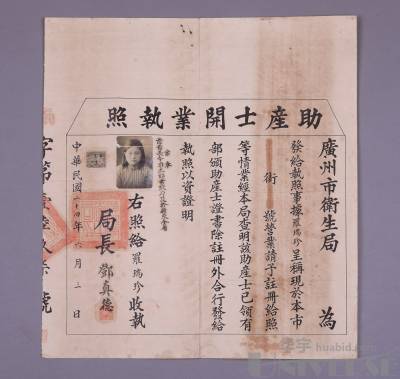 助產士開業執照
廣州市衛生局 為
發給執照事據羅瑞珍呈稱現於本市
街 號營業請予註冊給照
等情業經本局查明該助產士已領有
部頒助產士證書除註冊外合行發給
執照以資證明
右照給羅瑞珍收執
局長 鄧真德
中華民國二十四年 六月三日
字第 號
华宇 huabid.com
UNIVERSE